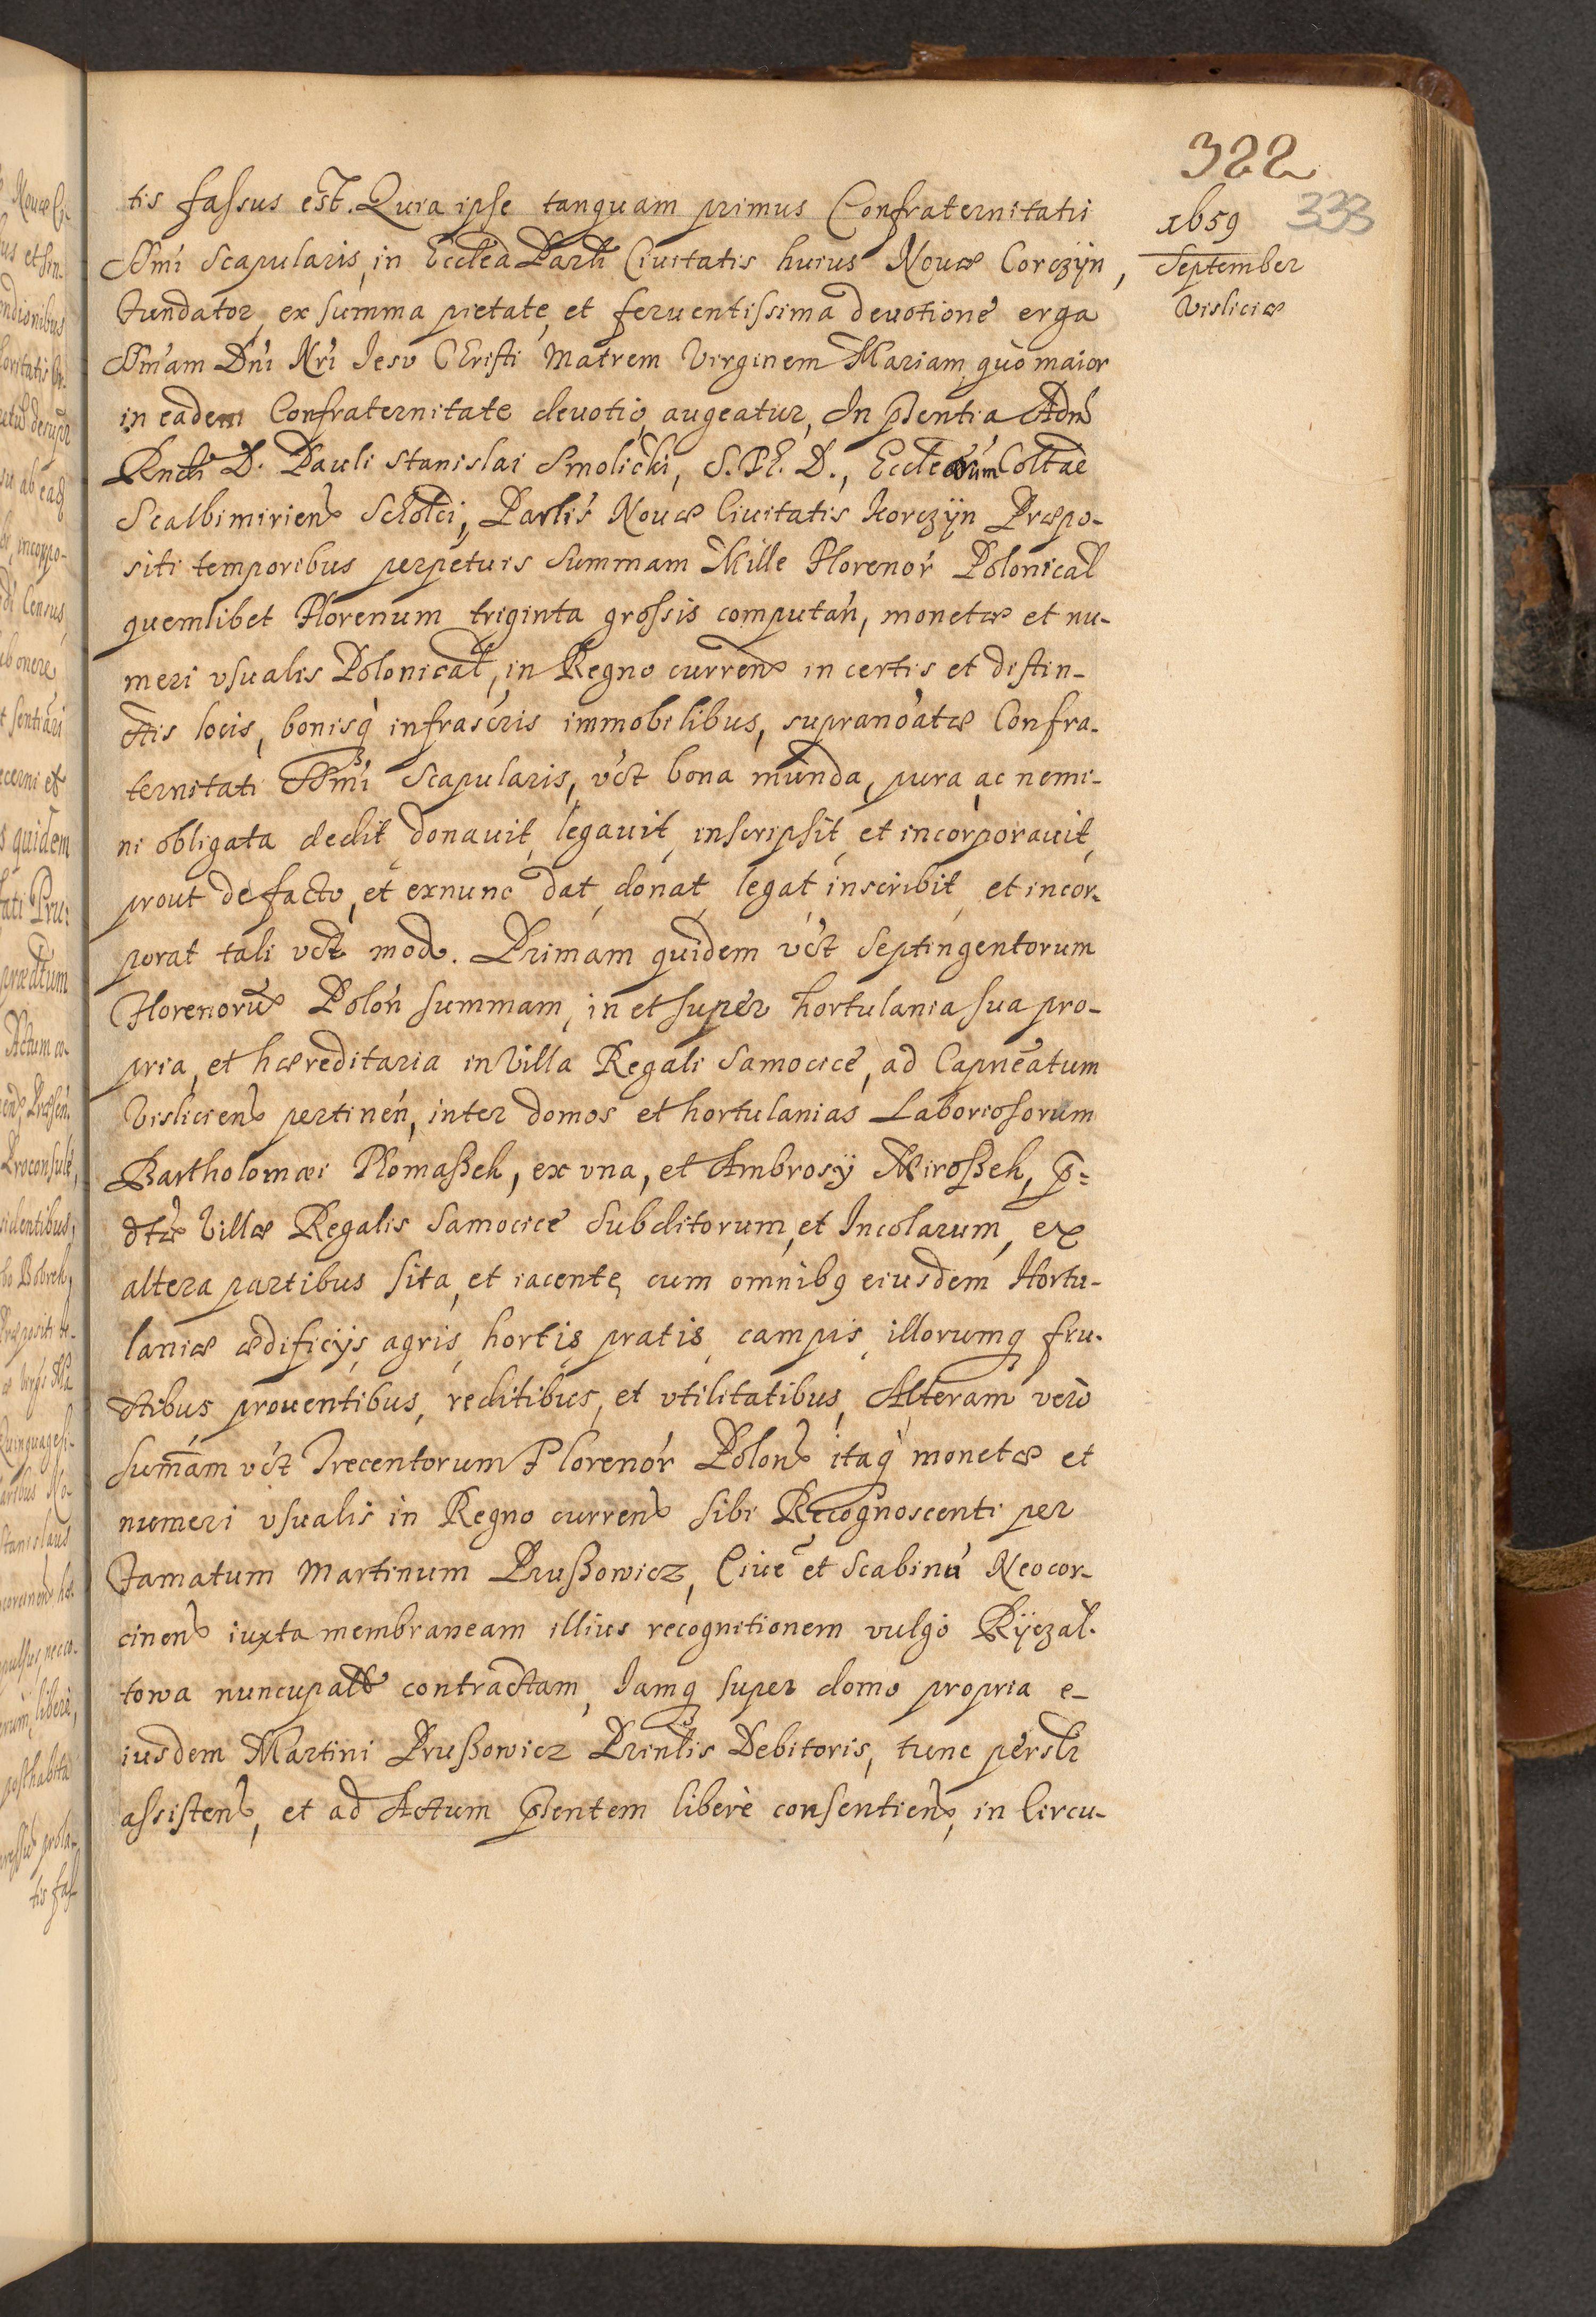 322
333
1659
September
Visliciæ
tis fassus est. Quia ipse tanquam primus Confraternitatis
SSmi Scapularis, in Ecclea Parli Ciuitatis huius Nouæ Corczÿn,
Fundator, ex summa pietate, et feruentissima deuotione erga
SSmam Dni Nri Iesu Christi Matrem Virginem Mariam, quo maior
in eadem Confraternitate deuotio augeatur, In pñtia Adm
Rndi D. Pauli Stanislai Smolicki, S. Th. D., Ecclearum Coltae
Scalbimirien Scholci, Parlis Nouæ Ciuitatis Korczÿn Præpo-
siti temporibus perpetuis Summam Mille Florenor Polonical
quemlibet Florenum triginta grossis computan, monetæ et nu-
meri vsualis Polonical, in Regno curren in certis et distin-
ctis locis, bonisq infrascris immobilibus, supranoatæ Confra-
ternitati SSmi Scapularis, vct bona munda, pura, ac nemi-
ni obligata dedit, donauit, legauit, inscripsit, et incorporauit,
prout de facto, et exnunc dat, donat, legat inscribit, et incor-
porat tali vct modo. Primam quidem vct Septingentorum
Florenorum Polon summam, in et super hortulania sua pro-
pria, et hæreditaria in Villa Regali Samocice, ad Capneatum
Vislicien pertinen, inter domos et hortulanias Laboriosorum
Bartholomæi Plomaßek, ex vna, et Ambrosÿ Miroßek, p=
dtæ Villæ Regalis Samocice Subditorum, et Incolarum, ex
altera partibus sita, et iacente, cum omnibq eiusdem Hortu-
laniæ ædificijs, agris, hortis, pratis, campis, illorumq fru-
ctibus prouentibus, reditibus, et vtilitatibus, Alteram vero
summam vct Trecentorum Florenor Polon itaq monetæ et
numeri vsualis in Regno curren sibi Recognoscenti per
Famatum Martinum Prußowicz, Ciue et Scabinu Neocor-
cinen iuxta membraneam illius recognitionem vulgo Rÿczał-
towa nuncupatt contractam, Iamq super domo propria e-
iusdem Martini Prußowicz Prinlis Debitoris, tunc persłr
assisten, et ad Actum pñtem libere consentien, in Circu-